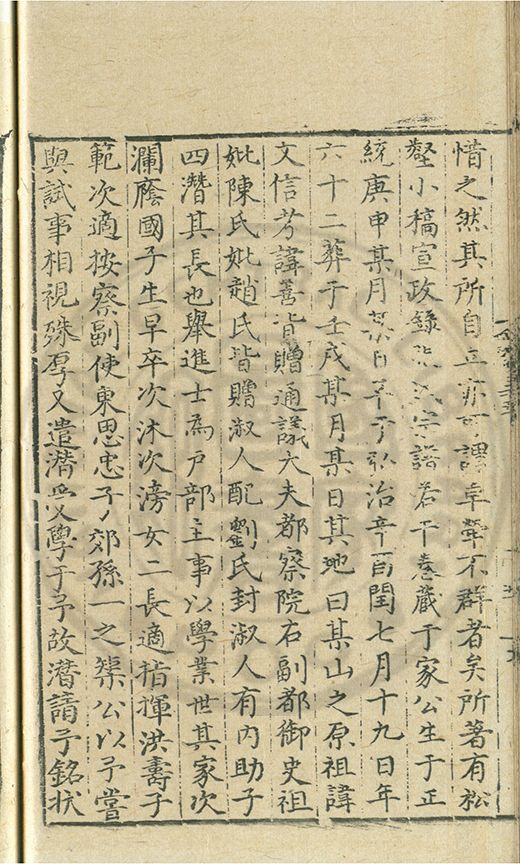 惜之然其所自立亦可謂卓犖不群者矣所著有松
壑小稿宣政錄氏宗譜若干卷藏于家公生于正
統庚申某月某日卒于弘治辛酉閏七月十九日年
六十二葬于壬戌某月某日其地曰某山之原祖諱
文信芳諱善皆贈通議大夫都察院右副都御史祖
妣陳氏妣趙氏皆贈淑人配劉氏封淑人有內助子
四潛其長也舉進士為戶部主事以學業世其家次
瀾廕國子生早卒次沐次滂女二長適指揮洪壽子
範次適按察副使東思忠子〻郊孫一之榘公以予嘗
與試事相視殊厚又遣潛受學于予故潛請予銘狀